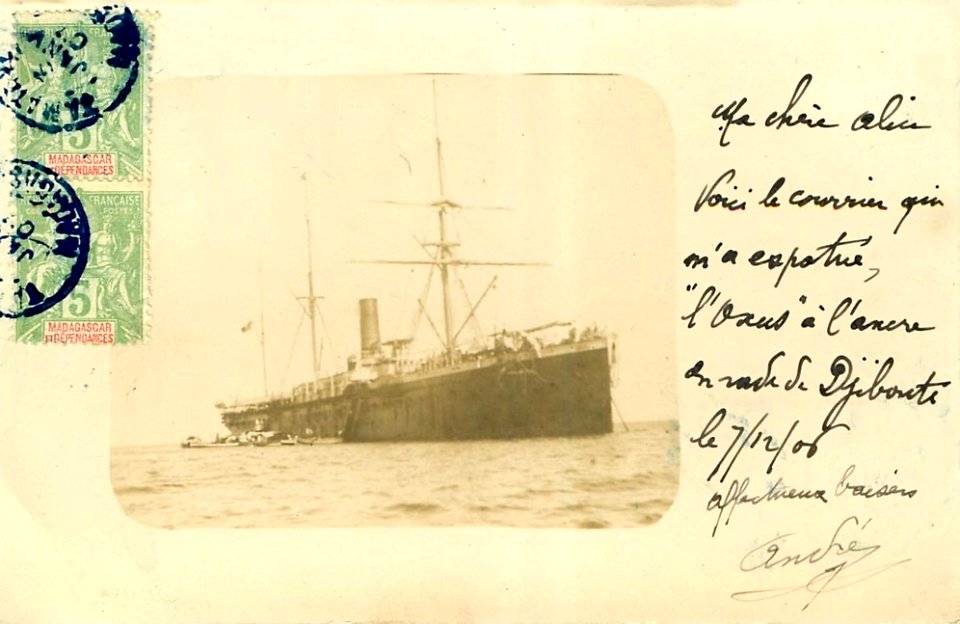 5
MADAGASCAR
ET DÉPENDANCES
FRANÇAISE
POSTES
5
MADAGASCAR
ET DÉPENDANCES
Ma chère Alice
Voici le courrier qui
m'a expatrié,
"l'Oxus" à l'ancre
en rade de Djibouti
le 7/12/06
affectueux baisers
André